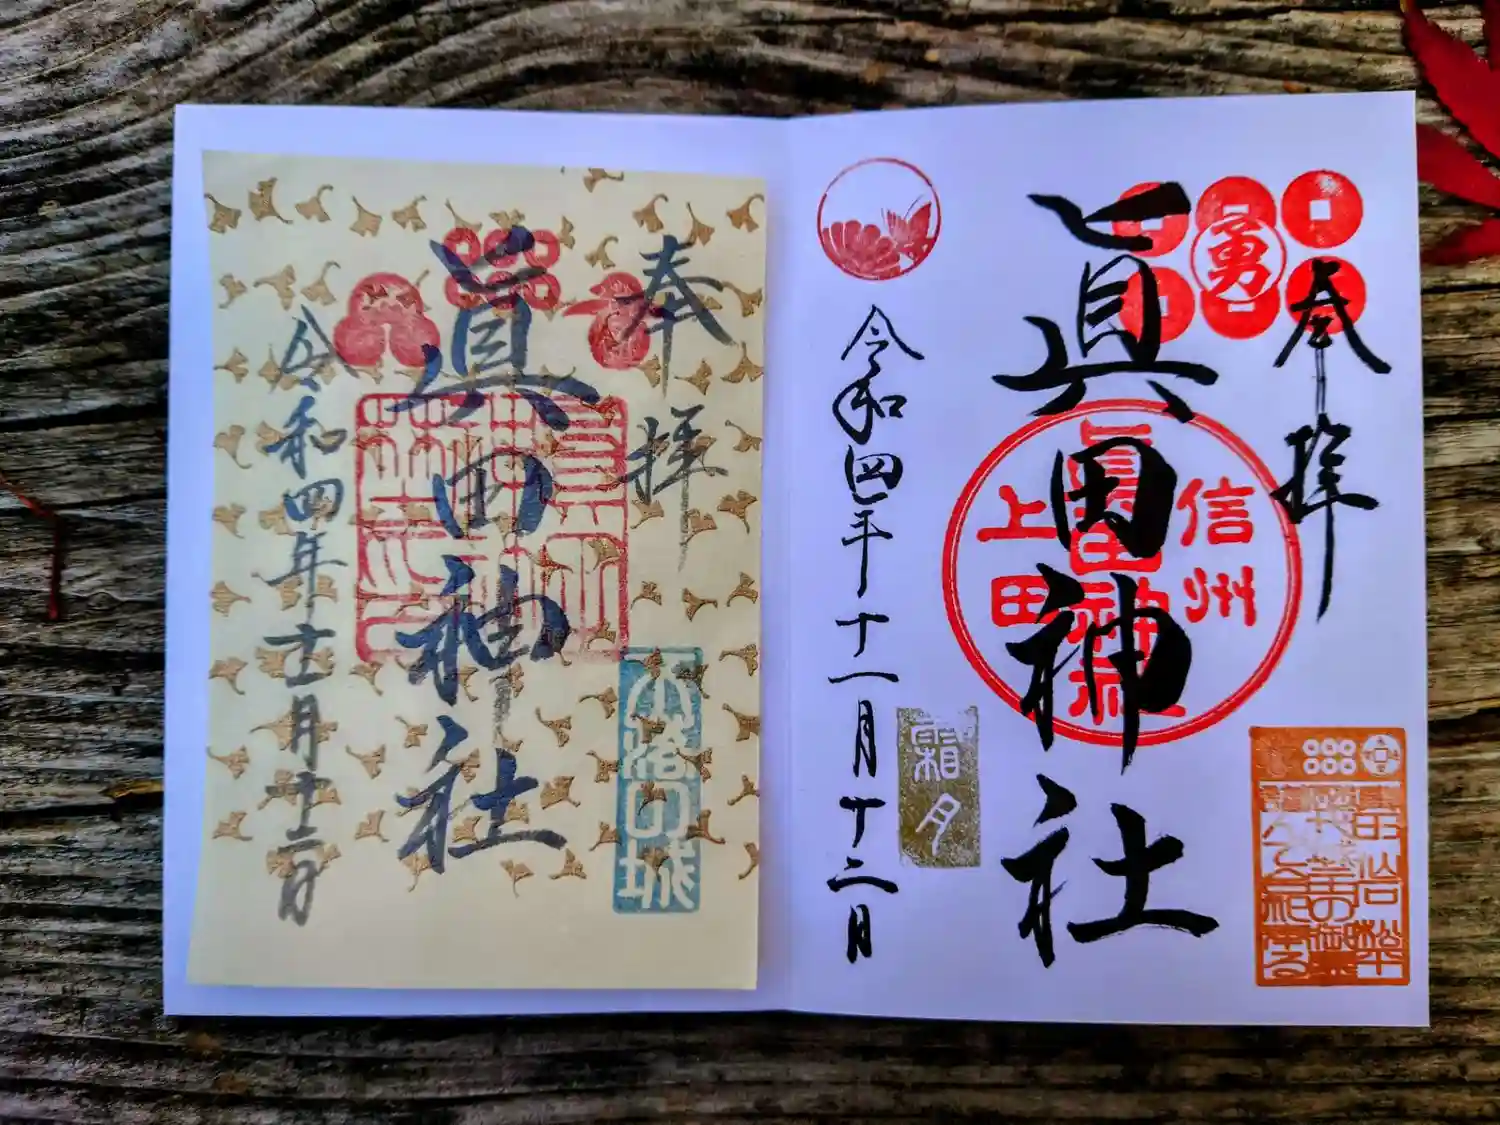 奉拝
眞田神社
令和四年十一月十二日
勇
信州
上田
眞田神社
霜月
奉拝
眞田神社
令和四年十一月十二日
不落の城